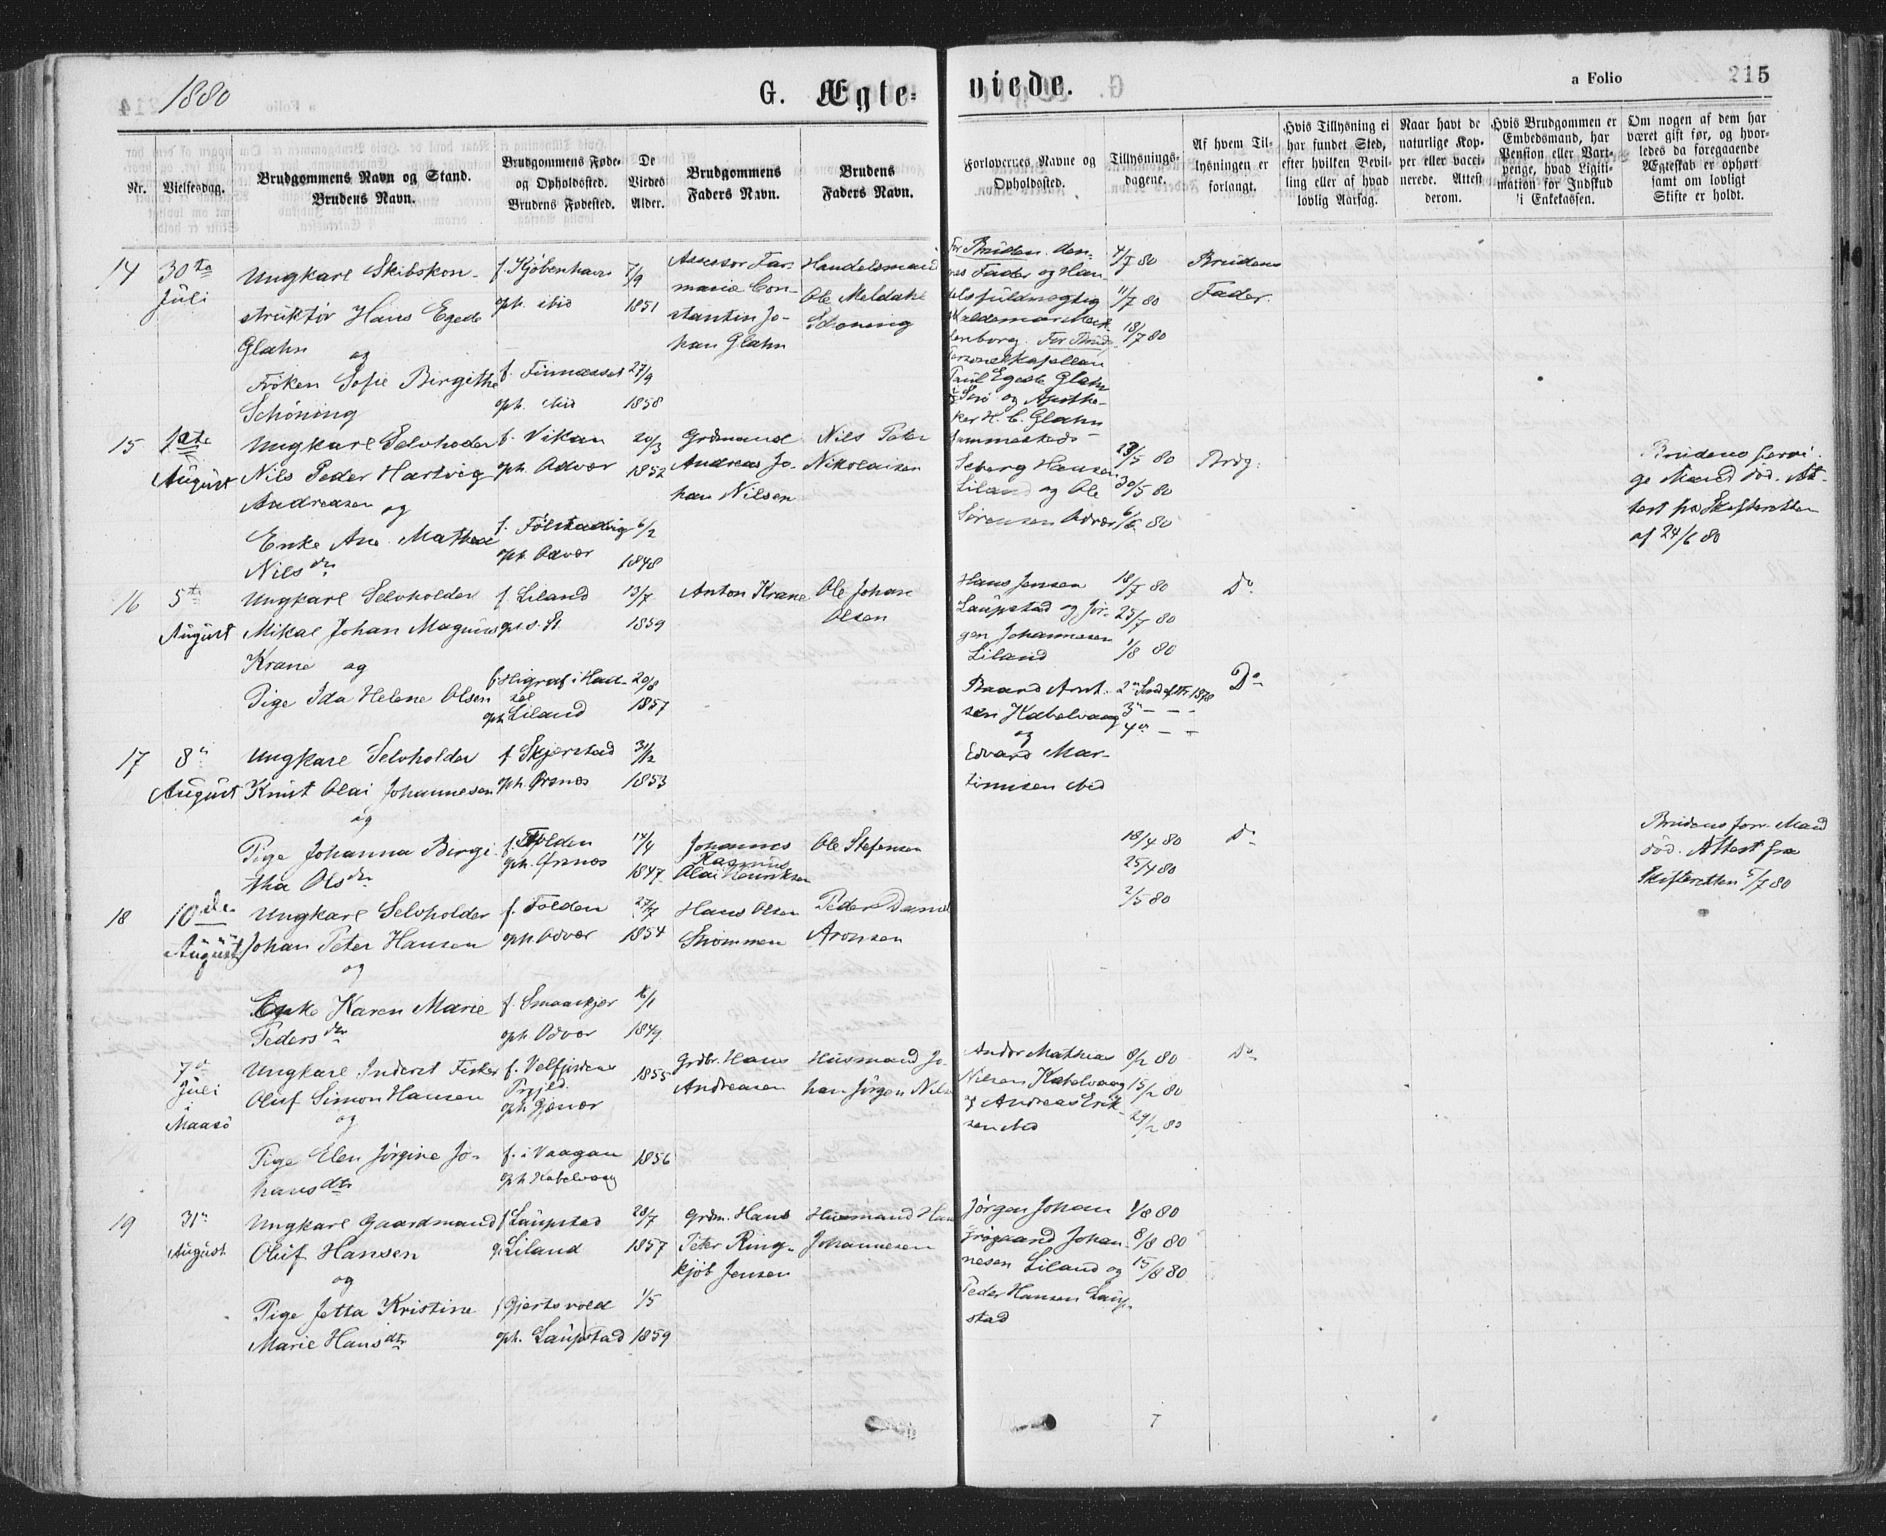 1880
G. Ægte-
viede.
a Folio
215
Nr.
Vielsesdag.
Brudgommens Navn og Stand.
Brudens Navn.
Brudgommens Føde-
og Opholdssted.
Brudens Fødested.
De
Viedes
Alder.
Brudgommens
Faders Navn.
Brudens
Faders Navn.
Forlovernes Navne og
Opholdssted.
Tillysnings-
dagene.
Af hvem Til-
lysningen er
forlangt.
Hvis Tillysning ei
har fundet Sted,
efter hvilken Bevil-
ling eller af hvad
lovlig Aarsag.
Naar havt de
naturlige Kop-
per eller vacci-
nerede. Attest
derom.
Hvis Brudgommen er
Embedsmand, har
Pension eller Vart-
penge, hvad Legiti-
mation for Indskud
i Enkekassen.
Om nogen af dem har
været gift før, og hvor-
ledes da foregaaende
Ægteskab er ophørt
samt om lovligt
Skifte er holdt.
14
30te
Juli
Ungkarl Skibskon-
struktør Hans Egede
Glahn
og
Frøken Sofie Birgithe
Schöning
f. Kjøbenhavn
oph. ibid
f. Finnæsset
oph. ibid
7/9
1851
27/9
1858
Assesor Far-
macia Con-
stantin Jo-
han Glahn
Handelsmand
Ole Meldahl
Schöning
For Bruden den-
nes Fader og Han-
delsfuldmægtig
Valdemar Meck-
lenborg. For Brud-
Personelkapellan
Paul Egede Glahn
og Apothe-
ker H. C. Glahn
Hammersteds
4/7 80
11/7 80
18/7 80
Brudens
Fader.
15
1ste
August
Ungkarl Selvholder
Nils Peder Hartvig
Andreasen og
Enke Ane Mathea
Nilsdtr
f. Vikan
oph. Odvær
f. Følstadvig
oph. Odvær
20/3
1852
6/2
1848
Grdmand
Andreas Jo-
han Nilsen
Nils Peter
Nikolaisen
Seberg Hansen
Liland og Ole
Sörensen Odvær
23/5 80
30/5 80
6/6 80
Brdg:
Brudens forri-
ge Mand död. At-
test fra Skifteretten
af 24/6 80
16
5te
August
Ungkarl Selvholder
Mikal Johan Magnus
Krane og
Pige Ida Helene Olsen
f. Liland
opl. s. St.
f. Higraf i Had-
sel
oph. Liland
13/7
1859
20/8
1857
Anton Krane
Ole Johan
Olsen
Hans Jensen
Laupstad og Jör-
gen Johannesen
Liland
18/7 80
25/7 80
1/8 80
Do
17
8n
August
Ungkarl Selvholder
Knut Olai Johannesen
og
Pige Johanna Birgi-
tha Olsdtr
f. Skjerstad
oph. Ørsnes
f. Folden
oph. Ørsnes
31/12
1853
14/4
1847
Johannes
Rasmus
Olai Henriksen
Ole Stefensen
Baard Arnt-
sen Kabelvaag
og
Edvard Mar-
tinusen ibid
2n Sind. eft. Tr. 1878
3n — — -
4n — -
Do
18
10de
August
Ungkarl Selvholder
Johan Peter Hansen
og
Enke Karen Marie
Pedersdtr
f. Folden
oph. Odvær
f. Smaaskjær
oph. Odvær
27/7
1854
16/1
1849
Hans Olsen
Strømmen
Peder Daniel
Aronsen
18/4 80
25/4 80
2/5 80
Do
Brudens forr. Mand
död. Attest fra
Skifteretten 5/7 80
7de
Juli
i
Maasö
Ungkarl Inderst Fisker
Oluf Simon Hansen
og
Pige Elen Jörgine Jo-
hansdtr
f. Velfjorden
Prgjld.
oph. Gjesvær
f. i Vaagan
oph. Kabelvaag
1855
1856
Grdbr. Hans
Andreasen
Husmand Jo-
han Jörgen Nilsen
Andor Mathias
Nilsen Kabelvaag
og Andreas Erik-
sen ibid
8/2 80
15/2 80
29/2 80
Do
19
31n
August
Ungkarl Gaardmand
Oluf Hansen
og
Pige Jetta Kristine
Marie Hansdtr
f. Laupstad
Liland
f. Gjertsvold
oph. Laupstad
28/7
1857
1/5
1859
Grdm. Hans
Peter Ring-
kjöb Jensen
Husmand Hans
Johannesen
Jörgen Johan
Johan-
nesen Liland og
Peder Hansen Laup-
stad
1/8 80
8/8 80
15/8 80